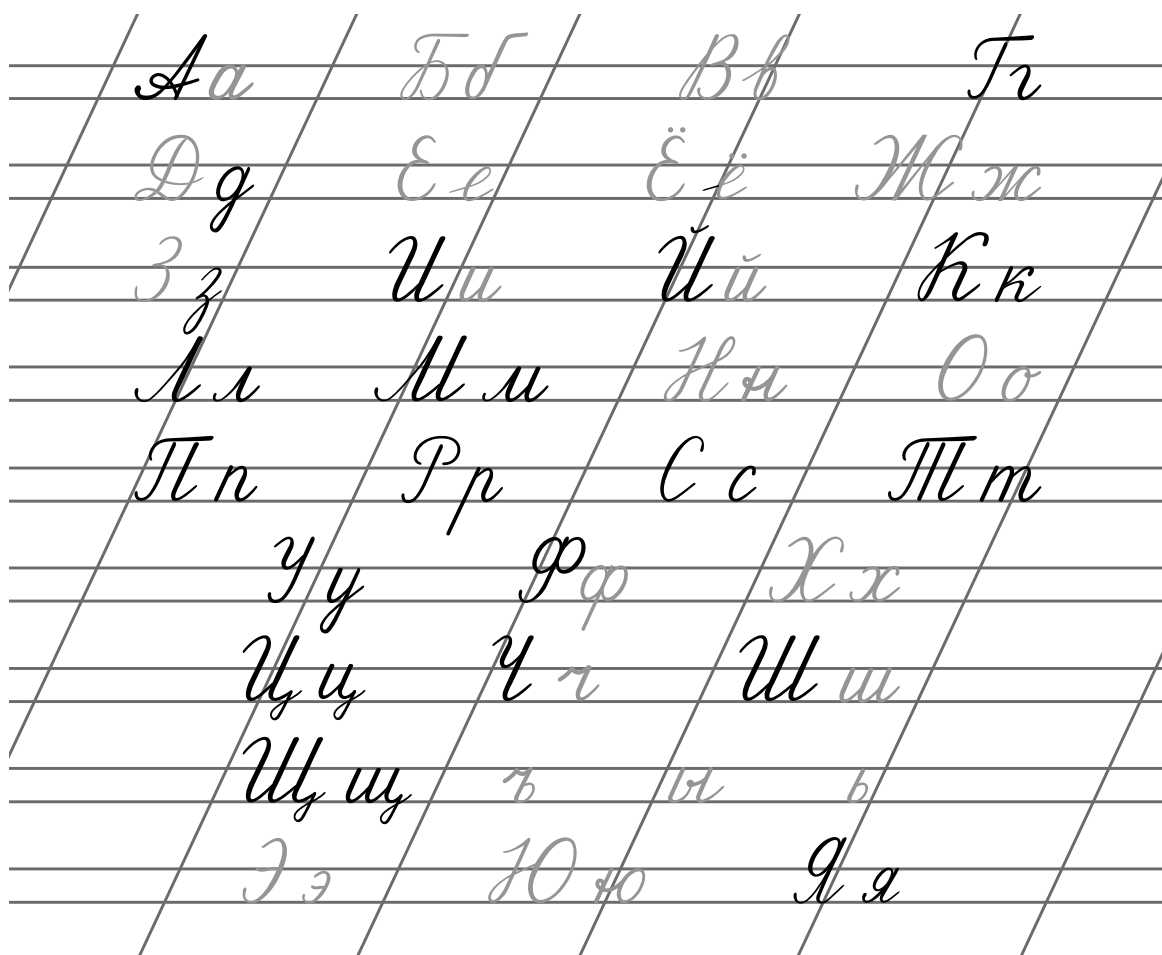 А а Б б В в Г г
Д д Е е Ё ё Ж ж
З з И и Й й К к
Л л М м Н н О о
П п Р р С с Т т
У у Ф ф Х х
Ц ц Ч ч Ш ш
Щ щ ъ ы ь
Э э Ю ю Я я